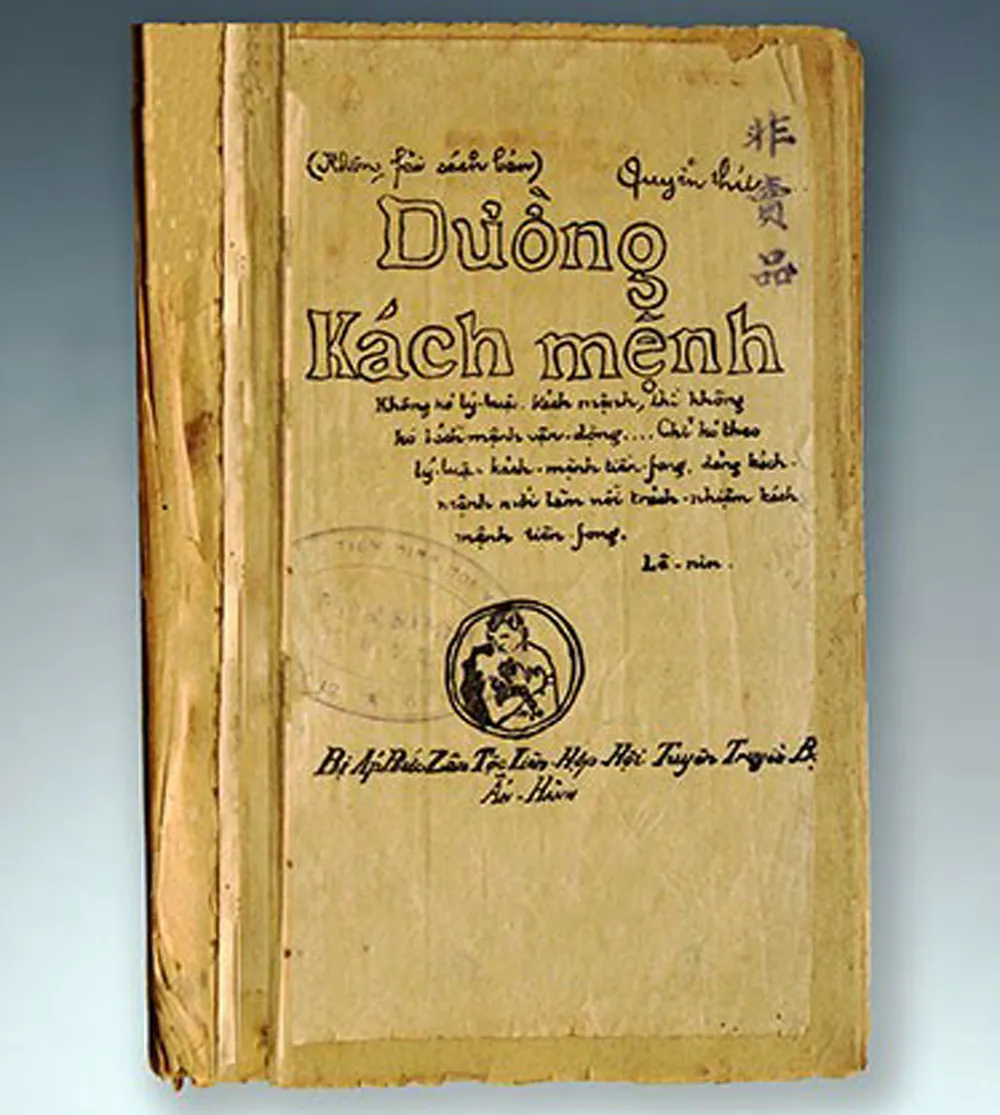 (Không fải sách bán)
Quyển thứ
非賣品
Dường
Kách mệnh
Không kó lý-luận kách mệnh, thì không
kó kách mệnh vận-động.... Chỉ kó theo
lý-luận kách-mệnh tiền-fong, đảng kách-
mệnh mới làm nổi trách-nhiệm kách
mệnh tiền-fong.
Lê-nin.
Bị Áp Bức Zân Tộc Liên-Hợp-Hội Tuyên Truyền Bộ
Ấn-Hành